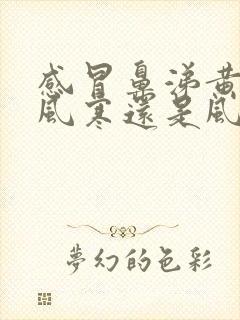 感冒鼻涕黄
風寒還是風
夢幻的色彩